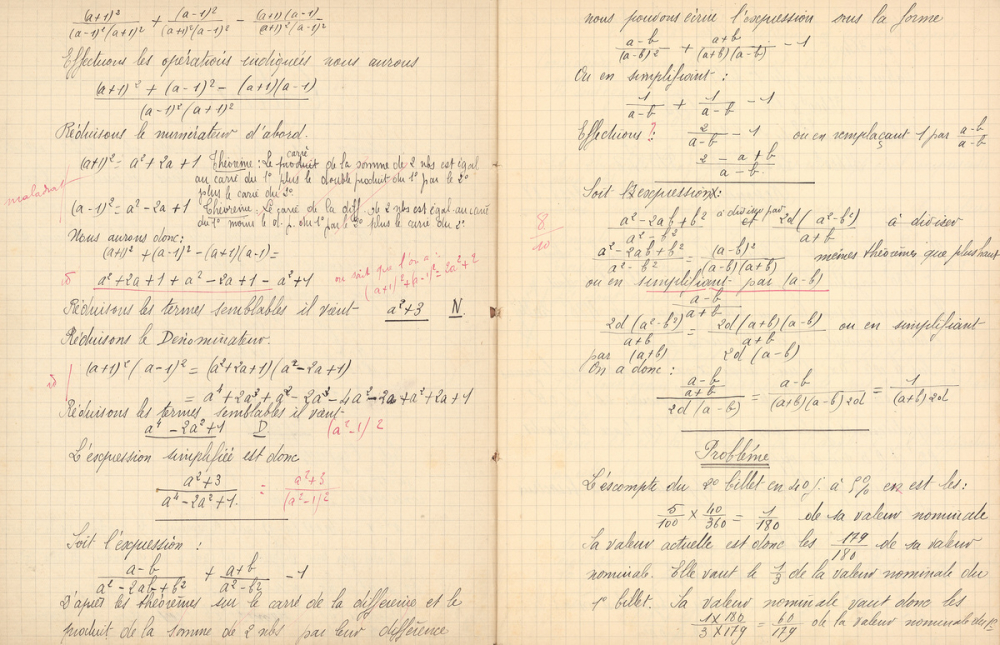 (a+1)² / (a-1)²(a+1)² + (a-1)² / (a+1)²(a-1)² - (a+1)(a-1) / (a+1)²(a-1)²
Effectuons les opérations indiquées nous aurons
(a+1)² + (a-1)² - (a+1)(a-1) / (a-1)²(a+1)²
Réduisons le numérateur d'abord.
(a+1)² = a² + 2a + 1 Théorème : Le produit carré de la somme de 2 nbs est égal
au carré du 1° plus le double produit du 1° par le 2°
plus le carré du 2°
maladroit
(a-1)² = a² - 2a + 1 Théorème : Le carré de la diff. de 2 nbs est égal au carré
du 1° moins le d. p. du 1° par le 2° plus le carré du 2°
Nous aurons donc :
(a+1)² + (a-1)² - (a+1)(a-1) =
id a² + 2a + 1 + a² - 2a + 1 - a² + 1 on sait que l'on a : (a+1)² + (a-1)² = 2a² + 2
Réduisons les termes semblables il vient a² + 3 N.
Réduisons le Dénominateur.
id (a+1)² (a-1)² = (a² + 2a + 1)(a² - 2a + 1)
= a⁴ + 2a³ + a² - 2a³ - 4a² - 2a + a² + 2a + 1
Réduisons les termes semblables il vient
a⁴ - 2a² + 1 D (a² - 1)²
L'expression simplifiée est donc
a² + 3 / a⁴ - 2a² + 1 = a² + 3 / (a² - 1)²
Soit l'expression :
a - b / a² - 2ab + b² + a + b / a² - b² - 1
D'après les théorèmes sur le carré de la différence et le
produit de la somme de 2 nbs par leur différence
nous pouvons écrire l'expression sous la forme
a - b / (a - b)² + a + b / (a+b)(a-b) - 1
Ou en simplifiant :
1 / a - b + 1 / a - b - 1
Effectuons ? 2 / a - b - 1 ou en remplaçant 1 par a - b / a - b
2 - a + b / a - b.
Soit l'expression :
8/10
a² - 2ab + b² / a² - b² à diviser par 2d (a² - b²) / a + b à diviser
a² - 2ab + b² / a² - b² = (a - b)² / (a - b)(a + b) mêmes théorèmes que plus haut
ou en simplifiant par (a - b)
a - b / a + b
2d (a² - b²) / a + b = 2d (a+b)(a-b) / a + b ou en simplifiant
par (a+b) 2d (a - b)
On a donc :
a - b / a + b / 2d (a - b) = a - b / (a+b)(a-b) 2d = 1 / (a+b) 2d
Problème
L'escompte du 2° billet en 40 j. à 5% en est les :
5/100 × 40/360 = 1/180 de sa valeur nominale
Sa valeur actuelle est donc les 179/180 de sa valeur
nominale. Elle vaut le 1/3 de la valeur nominale du
1° billet. Sa valeur nominale vaut donc les
1 × 180 / 3 × 179 = 60/179 de la valeur nominale du 1°